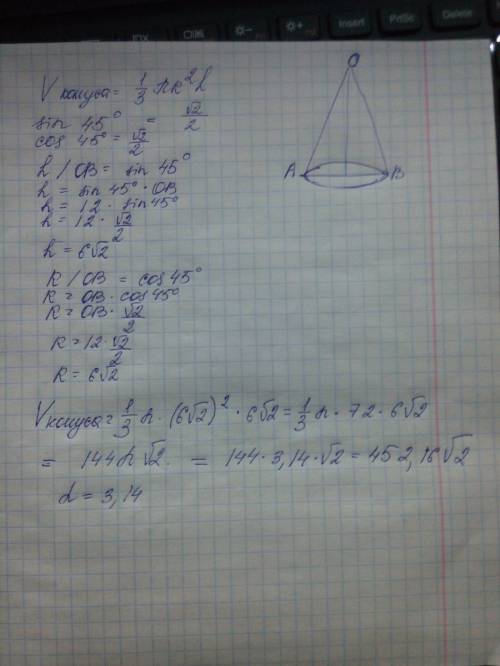 Insert PrtSc Delete
V конуса = 1/3 πR²h
sin 45° = √2/2
cos 45° = √2/2
h / OB = sin 45°
h = sin 45° · OB
h = 12 · sin 45°
h = 12 · √2/2
h = 6√2
R / OB = cos 45°
R = OB · cos 45°
R = OB · √2/2
R = 12 · √2/2
R = 6√2
O
A B
V конуса = 1/3 π · (6√2)² · 6√2 = 1/3 π · 72 · 6√2
= 144π√2 = 144 · 3,14 · √2 = 452,16√2
π = 3,14